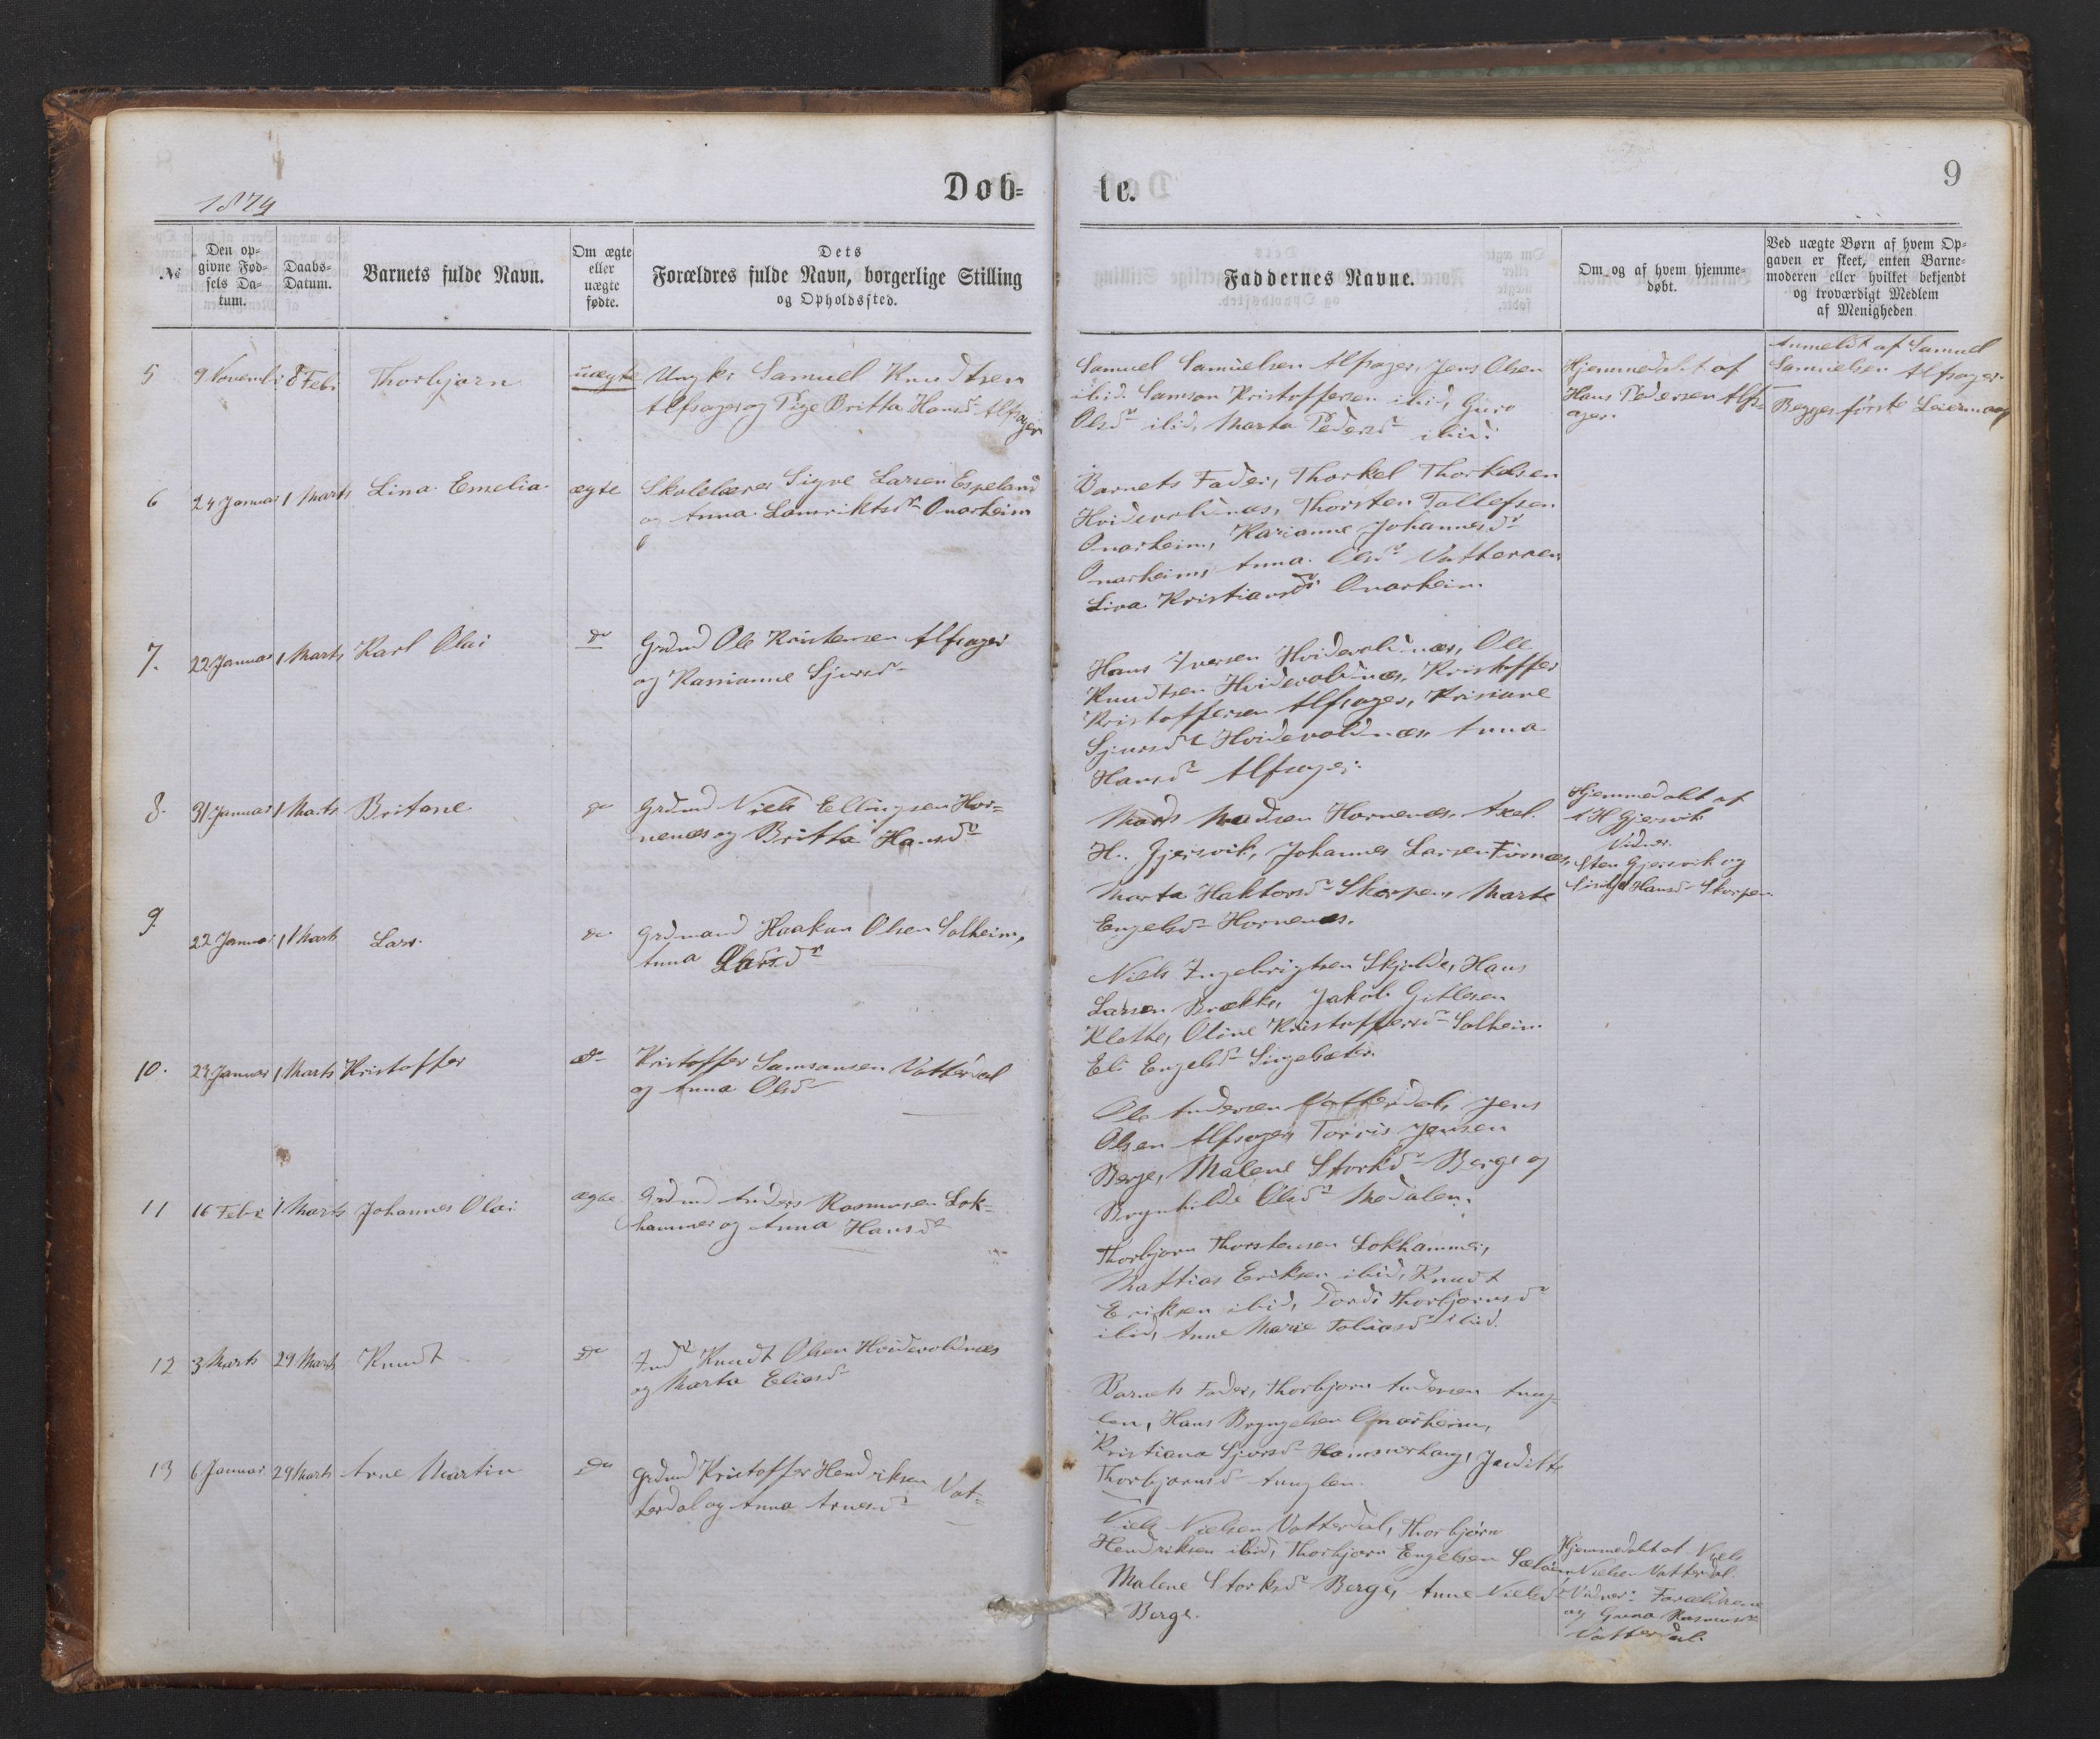 1874
Døb-
te.
9
№
Den op-
givne Fød-
sels Da-
tum.
Daabs-
Datum.
Barnets fulde Navn.
Om ægte
eller
uægte
fødte.
Dets
Forældres fulde Navn, borgerlige Stilling
og Opholdssted.
Faddernes Navne.
Om og af hvem hjemme-
døbt.
Ved uægte Børn af hvem Op-
gaven er skeet, enten Barne-
moderen eller hvilket bekjendt
og troværdigt Medlem
af Menigheden
5 9 Novemb: 8 Feb: Thorbjørn uægte Ungk: Samuel Knudtsen
Alfsager og Pige Britta Hansd: Alfsager
Samuel Samuelsen Alfsager, Jens Olsen
ibid. Samson Kristoffersen ibid, Guro
Olsdr ibid, Marta Pedersdr ibid:
Hjemmedøbt af
Hans Pedersen Alfs-
ager.
Anmeldt af Samuel
Samuelsen Alfsager.
Begges første Leiermaal
6 24 Januar 1 Marts Lina Emelia ægte Skolelærer Sigve Larsen Espeland
og Anna Lamriktsdr Onarheim
Barnets Fader, Thorkel Thorkelsen
Hvidevoldnæs, Thorsten Tollefsen
Onarheim, Karianne Johannesdr
Onarheim, Anna Olsdr Vatteroen
Lina Kristiansdr Onarheim.
7. 22 Januar 1 Marts Karl Olai do Grdmd Ole Kristensen Alfsager
og Rassianne Sjursdr
Hans Iversen Hvidevoldnæs, Ole
Knudtsen Hvidevoldnæs, Kristoffer
Kristoffersen Alfsager, Krisiane
Sjursdr Hvidevoldnæs Anna
Hansdr Alfsager.
8. 31 Januar 1 Marts Britane do Grdmd Niels Ellingsen Hor-
nenæs og Britta Hansdr
Mads Madsen Hornenæs, Axel
H. Gjersvik, Johannes Larsen Furnæs,
Marta Haktorsdr Skorpen, Marte
Engelsdr Hornenæs.
Hjemmedøbt af
A H Gjersvik
Vidner.
Sten Gjersvik og
Hansdr Skorpen
9. 22 Januar 1 Marts Lars. do Grdmand Haakon Olsen Solheim,
Anna Larsdr
Niels Ingebrigtsen Skjelde, Hans
Larsen Brekke, Jakob Gitlesen
Klette, Oline Kristoffersdr Solheim
Eli Engelsdr Singelsæter.
10. 23 Januar 1 Marts Kristoffer do Kristoffer Samsonsen Vatterdal
og Anna Olsdr
Ole Andersen Vatterdal, Jens
Olsen Alfsager, Torris Jensen
Berge, Malene Storksdr Berge og
Brynhilde Olsdr Medalen.
11 16 Febr 1 Marts Johannes Olai ægte Grdmd Anders Rasmusen Lok-
hammer og Anna Hansdr
Thorbjørn Thorstensen Lokhammer,
Mattias Eriksen ibid, Knudt
Eriksen ibid, Dordi Thorbjørnsdr
ibid, Anne Marie Tobiasdr ibid.
12 3 Marts 29 Marts Knudt do Indr Knudt Olsen Hvidevoldnæs
og Marta Eliasdr
Barnets Fader, Thorbjørn Andersen Aung-
len, Hans Brynjelsen Onarheim,
Kristiane Sjursdr Hammerhaug, Juditte
Thorbjørnsdr Aunglen.
13 6 Januar 29 Marts Arne Martin do Grdmd Kristoffer Hendriksen Vat-
terdal og Anna Arnesdr
Niels Nielsen Vatterdal, Thorbjørn
Hendriksen ibid, Thorbjørn Engelsen
Malene Storksdr Berge, Anne Nielsdr
Berge.
Hjemmedøbt af Niels
Nielsen Vatterdal.
Vidner: Forældrene
og Rasmusdr
Vatterdal.